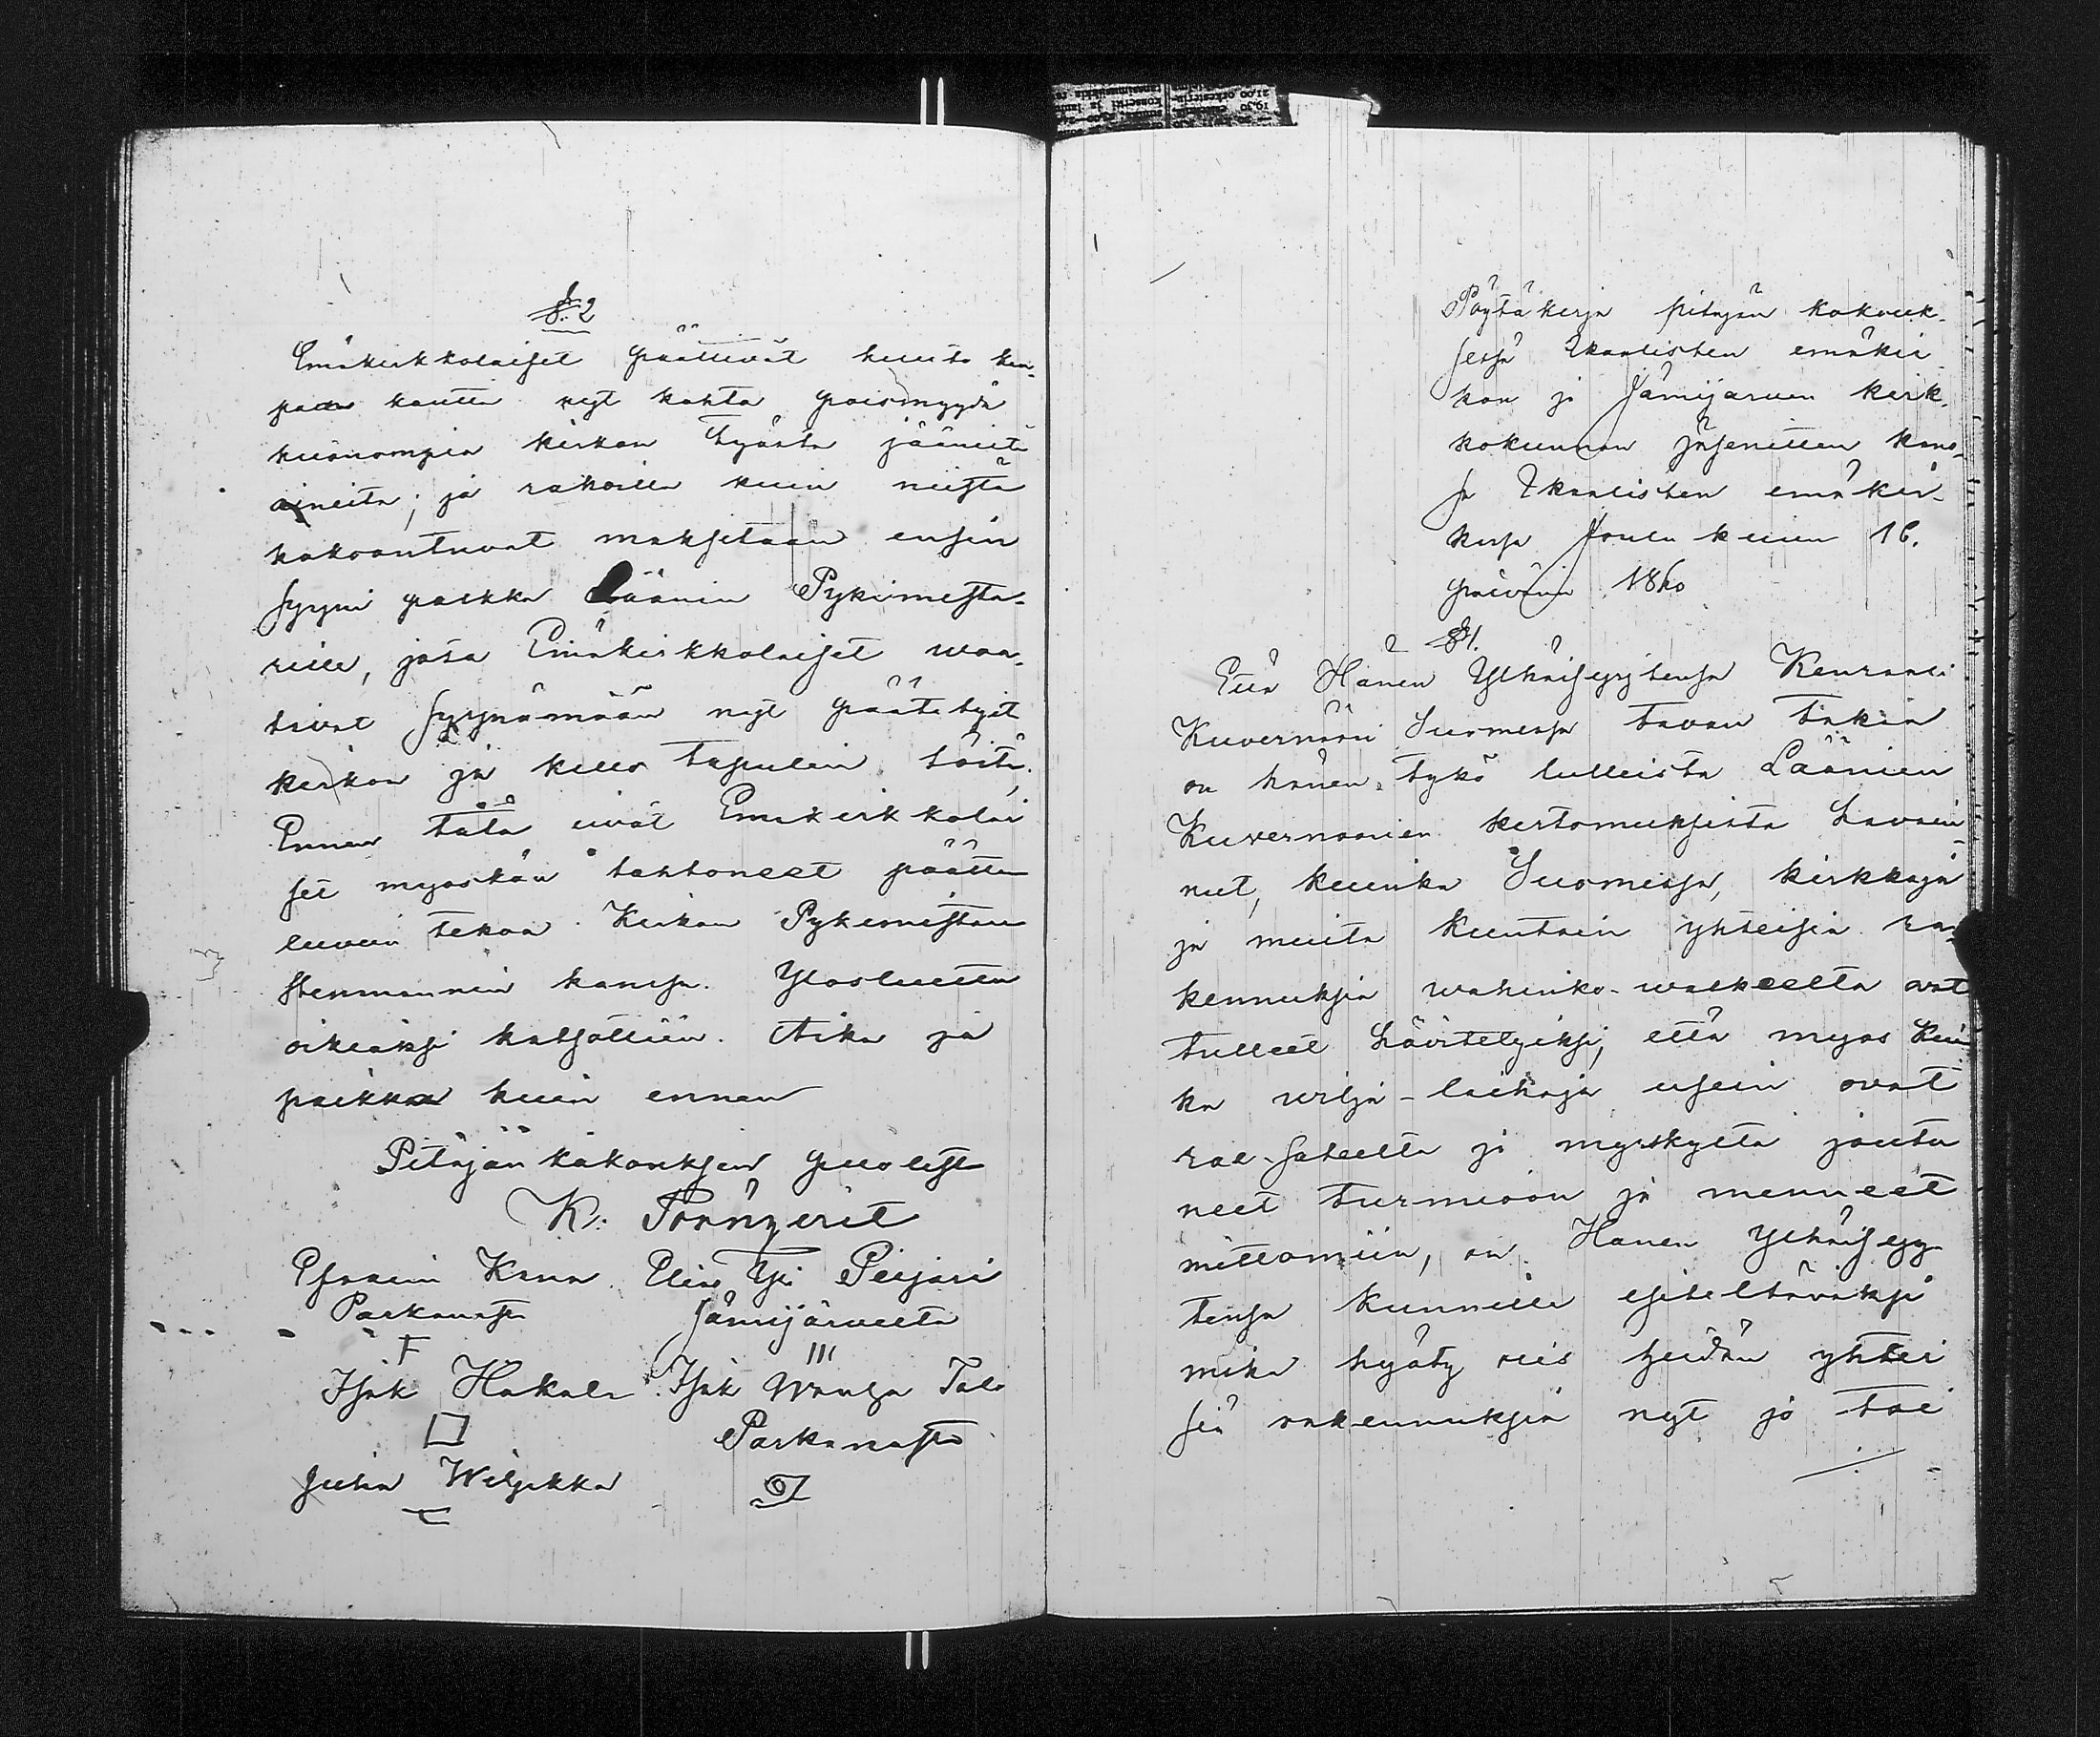 §. 2
Emäkirkkolaiset päättivät huuto kau-
pan kautta nyt kohta poismyydä
huonompia kirkon työstä jääneitä
aineita; ja raholla kuin niistä
kokoontuvat maksetaan ensin
syyni palkka Läänin Pykimesta-
rille, jota Emäkirkkolaiset waa-
tivat syynämään nyt päätetyit
kirkon ja kello tapulin töitä,
Ennen tätä eivät Emäkirkkolai
set myöskän tahtoneet päättä
luvun tekoa Kirkon Pykmestari
Stenmannin kanssa. Ylösluettu
oikiaksi katsottiin. Aika ja
paikka kuin ennen
Pitäjän kokouksen puolesta
K. Törnqvist
Efraim Kruu Elias Yli Peijari
Parkanosta Jämijärveltä
F III
Isak Hakala Isak Wanha Talo
Parkanosta
Juha Wilpikka
Pöytäkirja pitäjän kokouk-
sessa Ikaalisten emäkir
kon ja Jämijärven kirk-
kokunnan jäsenitten kans-
sa Ikaalisten emäkir-
kossa Joulu kuun 16.
päivänä 1860
§ 1.
Että Hänen Ylhäisyytensä Kenraali
Kuvernööri Suomessa tavan takia
on hänen tykö tulleista Läänien
Kuvernöörien kertomuksista havain-
nut, kuinka Suomessa, kirkkoja
ja muita kuntain yhteisiä ra-
kennuksia wahinko-walkeelta ovat
tulleet hävitetyiksi, että myös kuin
ka vilja-laihoja usein ovat
rae-sateelta ja myrskyltä joutu
neet turmioon ja menneet
mittömiin, on Hänen Ylhäisyy-
tensä kunnille esiteltäväksi
mikä hyöty olis heidän yhtei
siä rakennuksia nyt jo toi